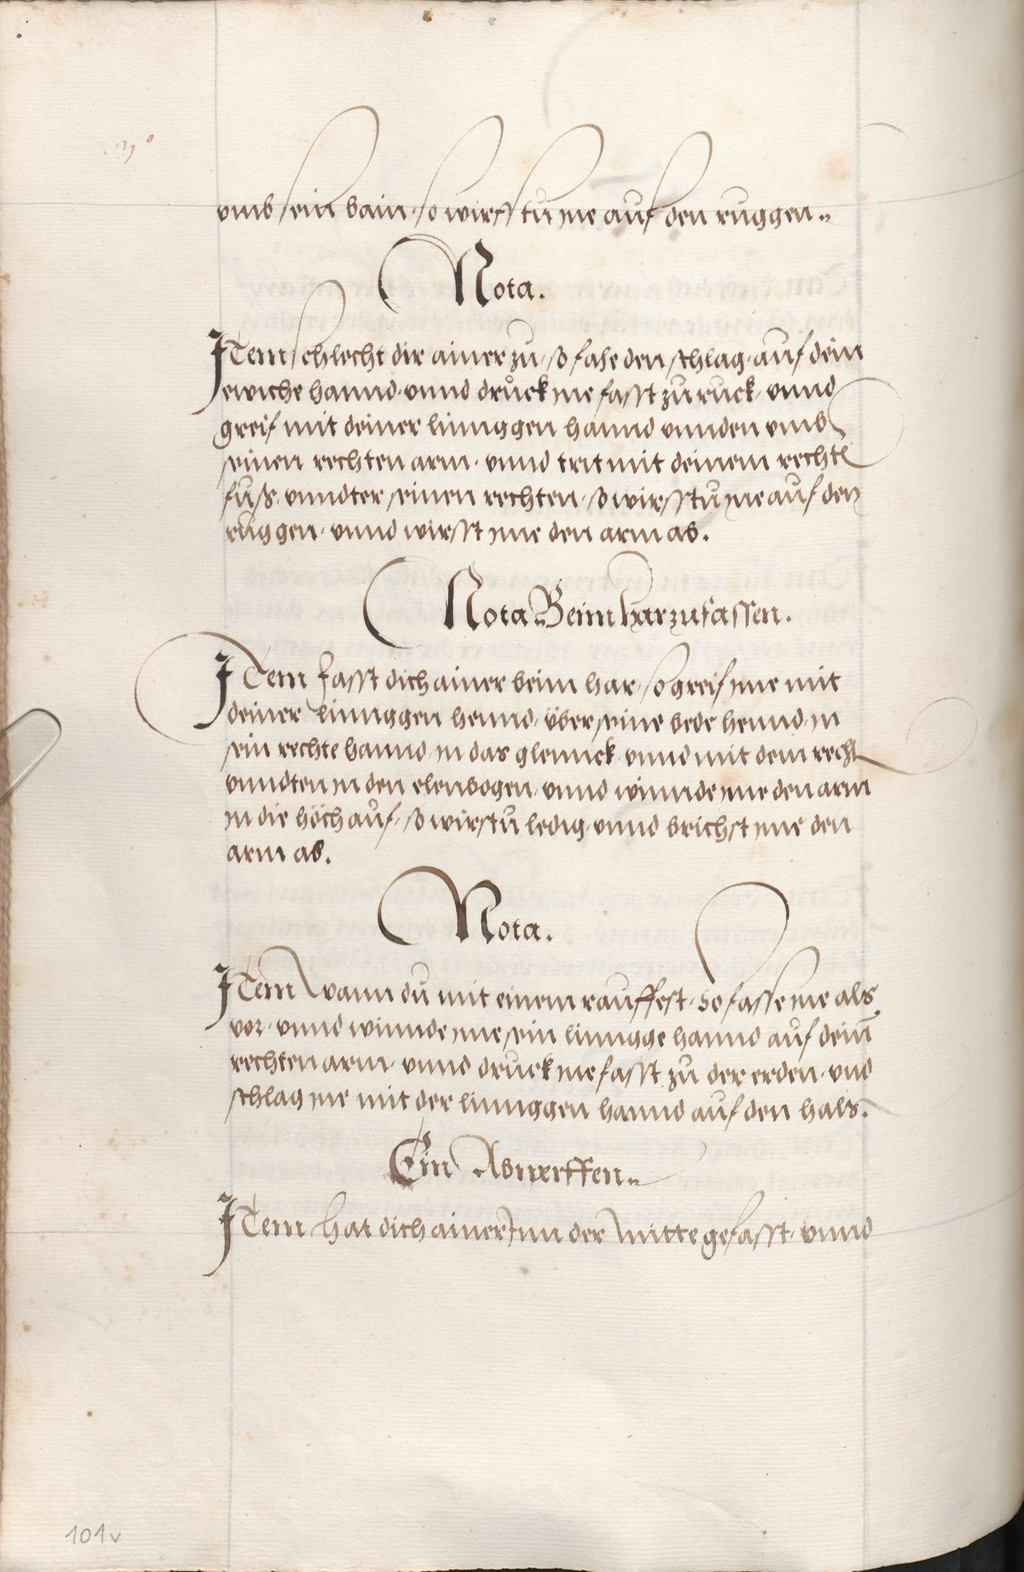 vmb sein bain, so wirfstu jne auf den ruggen..
Nota.
Item schlecht dir ainer zu, so fahe den schlag, auf dein
ewiche hannd, vnnd druck jne fasst zu ruck, vnnd
greif mit deiner linnggen hannd vnnden vmb
seinen rechten arm, vnnd trit mit deinem rechte
fuß, vnndter seinen rechten, so wirfstu jne auf den
ruggen, vnnd wirfst jme den arm ab.
Nota Beim har zufassen.
Item fasst dich ainer beim har, so greif jme mit
deiner linnggen hennd, über seine bede hennd, jn
sein rechte hannd, jn das glennck, vnnd mit dem recht
vnndten jn den elenbogen, vnnd winnde jme den arm
jn die höch auf, so wirstu ledig, vnnd brichst jme den
arm ab.
Nota.
Item wann du mit einem rauffest, so fasse jne als
vor, vnnd winnde jme sein lingge hannd auf dein
rechten arm, vnnd druck jne fasst zu der erden, vnd
schlag jne mit der linnggen hannd auf den hals.
Ein Abwerffen..
Item hat dich ainer jnn der mitte gefasst, vnnd
101v